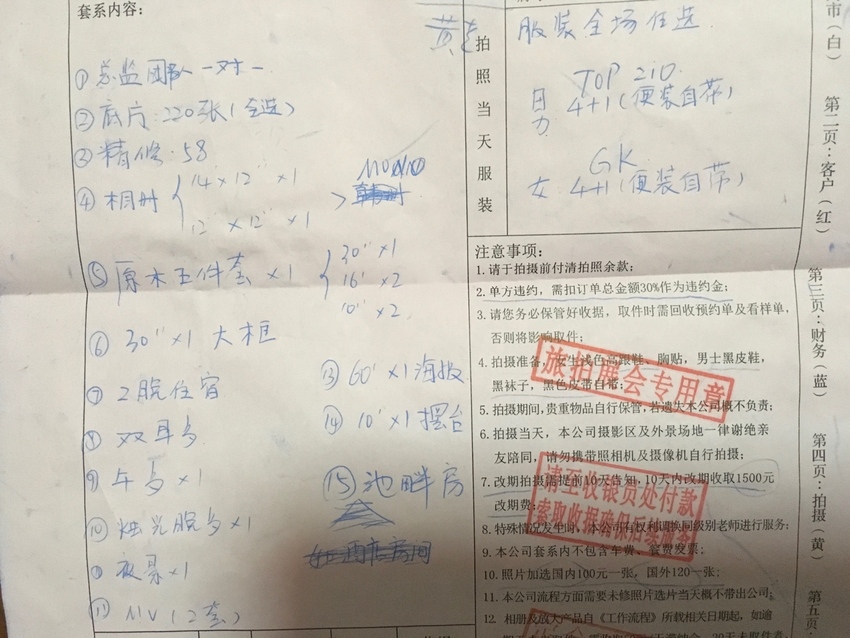 套系内容:
①总监团队一对一
②底片:220张(全送)
③精修:58
④相册
14"×12" ×1
12"×12" ×1
⑤原木五件套×1
30"×1
16"×2
10"×2
⑥30"×1大框
⑦2晚住宿
⑧双早
⑨午×1
⑩烛光晚×1
夜景×1
MV(2套)
⑬60"×1海报
⑭10"×1摆台
⑮池畔房
拍照当天服装
服装全场任选
TOP 210.
男 4+1(便装自带)
GK.
女 4+1(便装自带)
注意事项:
1.请于拍摄前付清拍照余款;
2.单方违约,需扣订单总金额30%作为违约金;
3.请您务必保管好收据,取件时需回收预约单及看样单,
否则将影响取件;
4.拍摄准备,女生浅色高跟鞋、胸贴,男士黑皮鞋,
黑袜子,黑色皮带自带;
5.拍摄期间,贵重物品自行保管,若遗失本公司概不负责;
6.拍摄当天,本公司摄影区及外景场地一律谢绝亲
友陪同,请勿携带照相机及摄像机自行拍摄;
7.改期拍摄需提前10天告知,10天内改期收取1500元
改期费;
8.特殊情况发生时,本公司有权利调换同级别老师进行服务;
9.本公司套系内不包含车费、餐费发票;
10.照片加选国内100元一张,国外120一张;
11.本公司流程方面需要未修照片选片当天概不带出公司。
12.相册及放大产品自《工作流程》所载相关日期起,如逾
旅拍展会专用章
请至收银员处付款
索取收据确保后续服务
市(白)
第二页:客户(红)
第三页:财务(蓝)
第四页:拍摄(黄)
第五页: